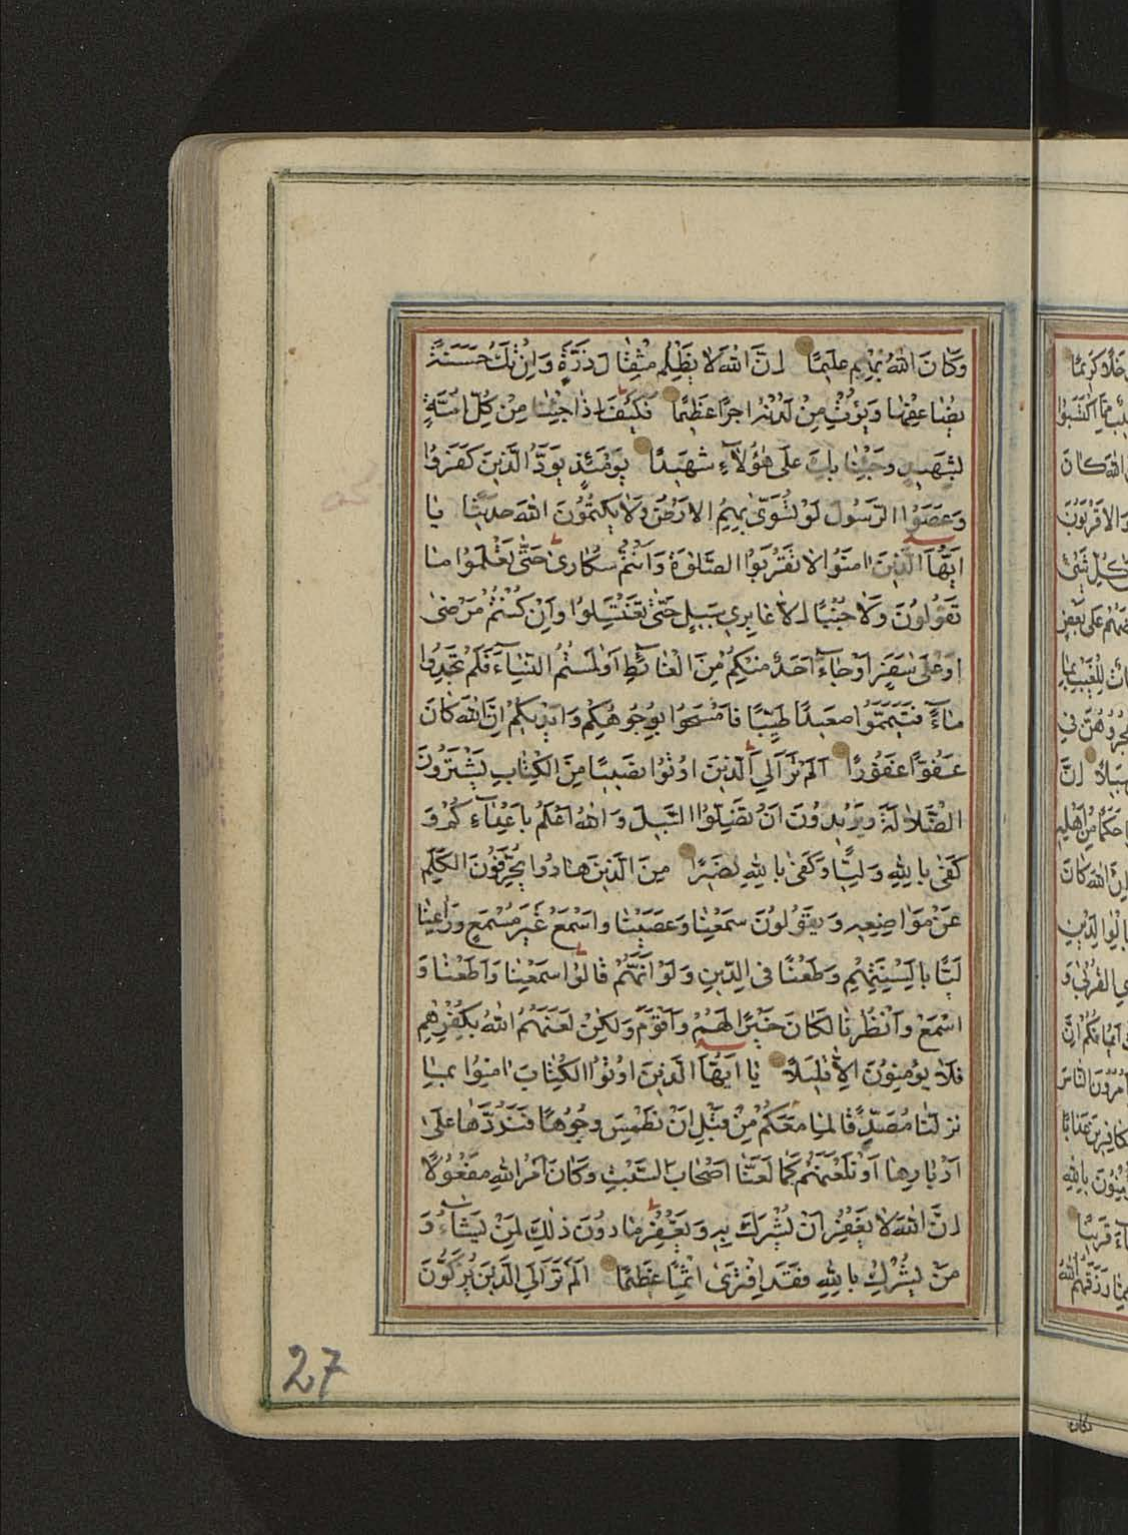 وَكَانَ اللهُ بِهِمْ عَلِيمًا اِنَّ اللهَ لَا يَظْلِمُ مِثْقَالَ ذَرَّةٍ وَاِنْ تَكُ حَسَنَةً
يُضَاعِفْهَا وَيُؤْتِ مِنْ لَدُنْهُ اَجْرًا عَظِيمًا فَكَيْفَ اِذَا جِئْنَا مِنْ كُلِّ اُمَّةٍ
بِشَهِيدٍ وَجِئْنَا بِكَ عَلَى هٰؤُلَآءِ شَهِيدًا يَوْمَئِذٍ يَوَدُّ الَّذِينَ كَفَرُوا
وَعَصَوُا الرَّسُولَ لَوْ تُسَوَّىٰ بِهِمُ الْاَرْضُ وَلَا يَكْتُمُونَ اللهَ حَدِيثًا يَا
اَيُّهَا الَّذِينَ اٰمَنُوا لَا تَقْرَبُوا الصَّلٰوةَ وَاَنْتُمْ سُكَارٰى حَتّٰى تَعْلَمُوا مَا
تَقُولُونَ وَلَا جُنُبًا اِلَّا عَابِرِي سَبِيلٍ حَتّٰى تَغْتَسِلُوا وَاِنْ كُنْتُمْ مَرْضٰى
اَوْ عَلٰى سَفَرٍ اَوْ جَآءَ اَحَدٌ مِنْكُمْ مِنَ الْغَآئِطِ اَوْ لَمَسْتُمُ النِّسَآءَ فَلَمْ تَجِدُوا
مَآءً فَتَيَمَّمُوا صَعِيدًا طَيِّبًا فَامْسَحُوا بِوُجُوهِكُمْ وَاَيْدِيكُمْ اِنَّ اللهَ كَانَ
عَفُوًّا غَفُورًا اَلَمْ تَرَ اِلَى الَّذِينَ اُوتُوا نَصِيبًا مِنَ الْكِتَابِ يَشْتَرُونَ
الضَّلَالَةَ وَيُرِيدُونَ اَنْ تَضِلُّوا السَّبِيلَ وَاللهُ اَعْلَمُ بِاَعْدَآئِكُمْ وَ
كَفٰى بِاللهِ وَلِيًّا وَكَفٰى بِاللهِ نَصِيرًا مِنَ الَّذِينَ هَادُوا يُحَرِّفُونَ الْكَلِمَ
عَنْ مَوَاضِعِهِ وَيَقُولُونَ سَمِعْنَا وَعَصَيْنَا وَاسْمَعْ غَيْرَ مُسْمَعٍ وَرَاعِنَا
لَيًّا بِاَلْسِنَتِهِمْ وَطَعْنًا فِي الدِّينِ وَلَوْ اَنَّهُمْ قَالُوا سَمِعْنَا وَاَطَعْنَا وَ
اسْمَعْ وَانْظُرْنَا لَكَانَ خَيْرًا لَهُمْ وَاَقْوَمَ وَلٰكِنْ لَعَنَهُمُ اللهُ بِكُفْرِهِمْ
فَلَا يُؤْمِنُونَ اِلَّا قَلِيلًا يَا اَيُّهَا الَّذِينَ اُوتُوا الْكِتَابَ اٰمِنُوا بِمَا
نَزَّلْنَا مُصَدِّقًا لِمَا مَعَكُمْ مِنْ قَبْلِ اَنْ نَطْمِسَ وُجُوهًا فَنَرُدَّهَا عَلٰى
اَدْبَارِهَا اَوْ نَلْعَنَهُمْ كَمَا لَعَنَّا اَصْحَابَ السَّبْتِ وَكَانَ اَمْرُ اللهِ مَفْعُولًا
اِنَّ اللهَ لَا يَغْفِرُ اَنْ يُشْرَكَ بِهِ وَيَغْفِرُ مَا دُونَ ذٰلِكَ لِمَنْ يَشَآءُ وَ
مَنْ يُشْرِكْ بِاللهِ فَقَدِ افْتَرٰى اِثْمًا عَظِيمًا اَلَمْ تَرَ اِلَى الَّذِينَ يُزَكُّونَ
27